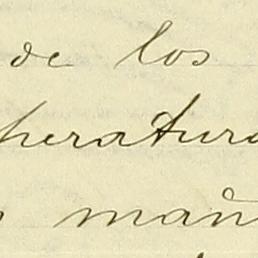 de los
peratura
mañ